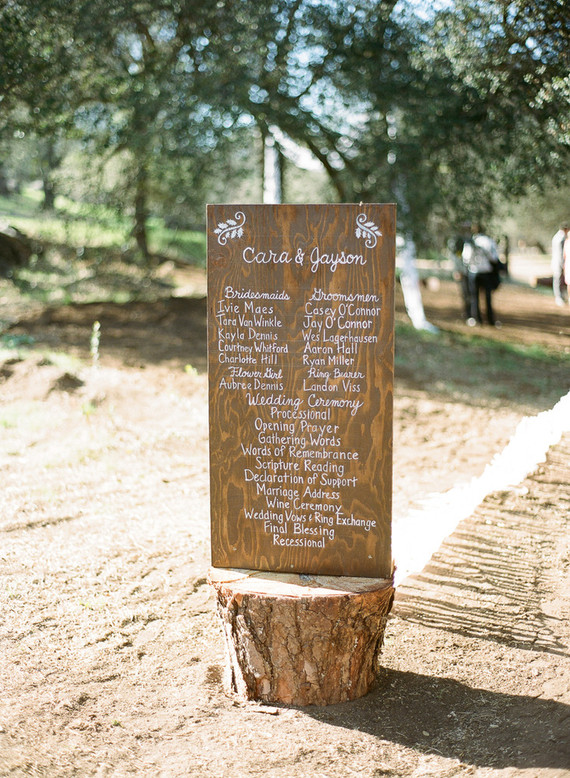 Cara & Jayson
Bridesmaids
Ivie Maes
Tara VanWinkle
Kayla Dennis
Courtney Whitford
Charlotte Hill
Flower Girl
Aubree Dennis
Groomsmen
Casey O'Connor
Jay O'Connor
Wes Lagerhausen
Aaron Hall
Ryan Miller
Ring Bearer
Landon Viss
Wedding Ceremony
Processional
Opening Prayer
Gathering Words
Words of Remembrance
Scripture Reading
Declaration of Support
Marriage Address
Wine Ceremony
Wedding Vows & Ring Exchange
Final Blessing
Recessional